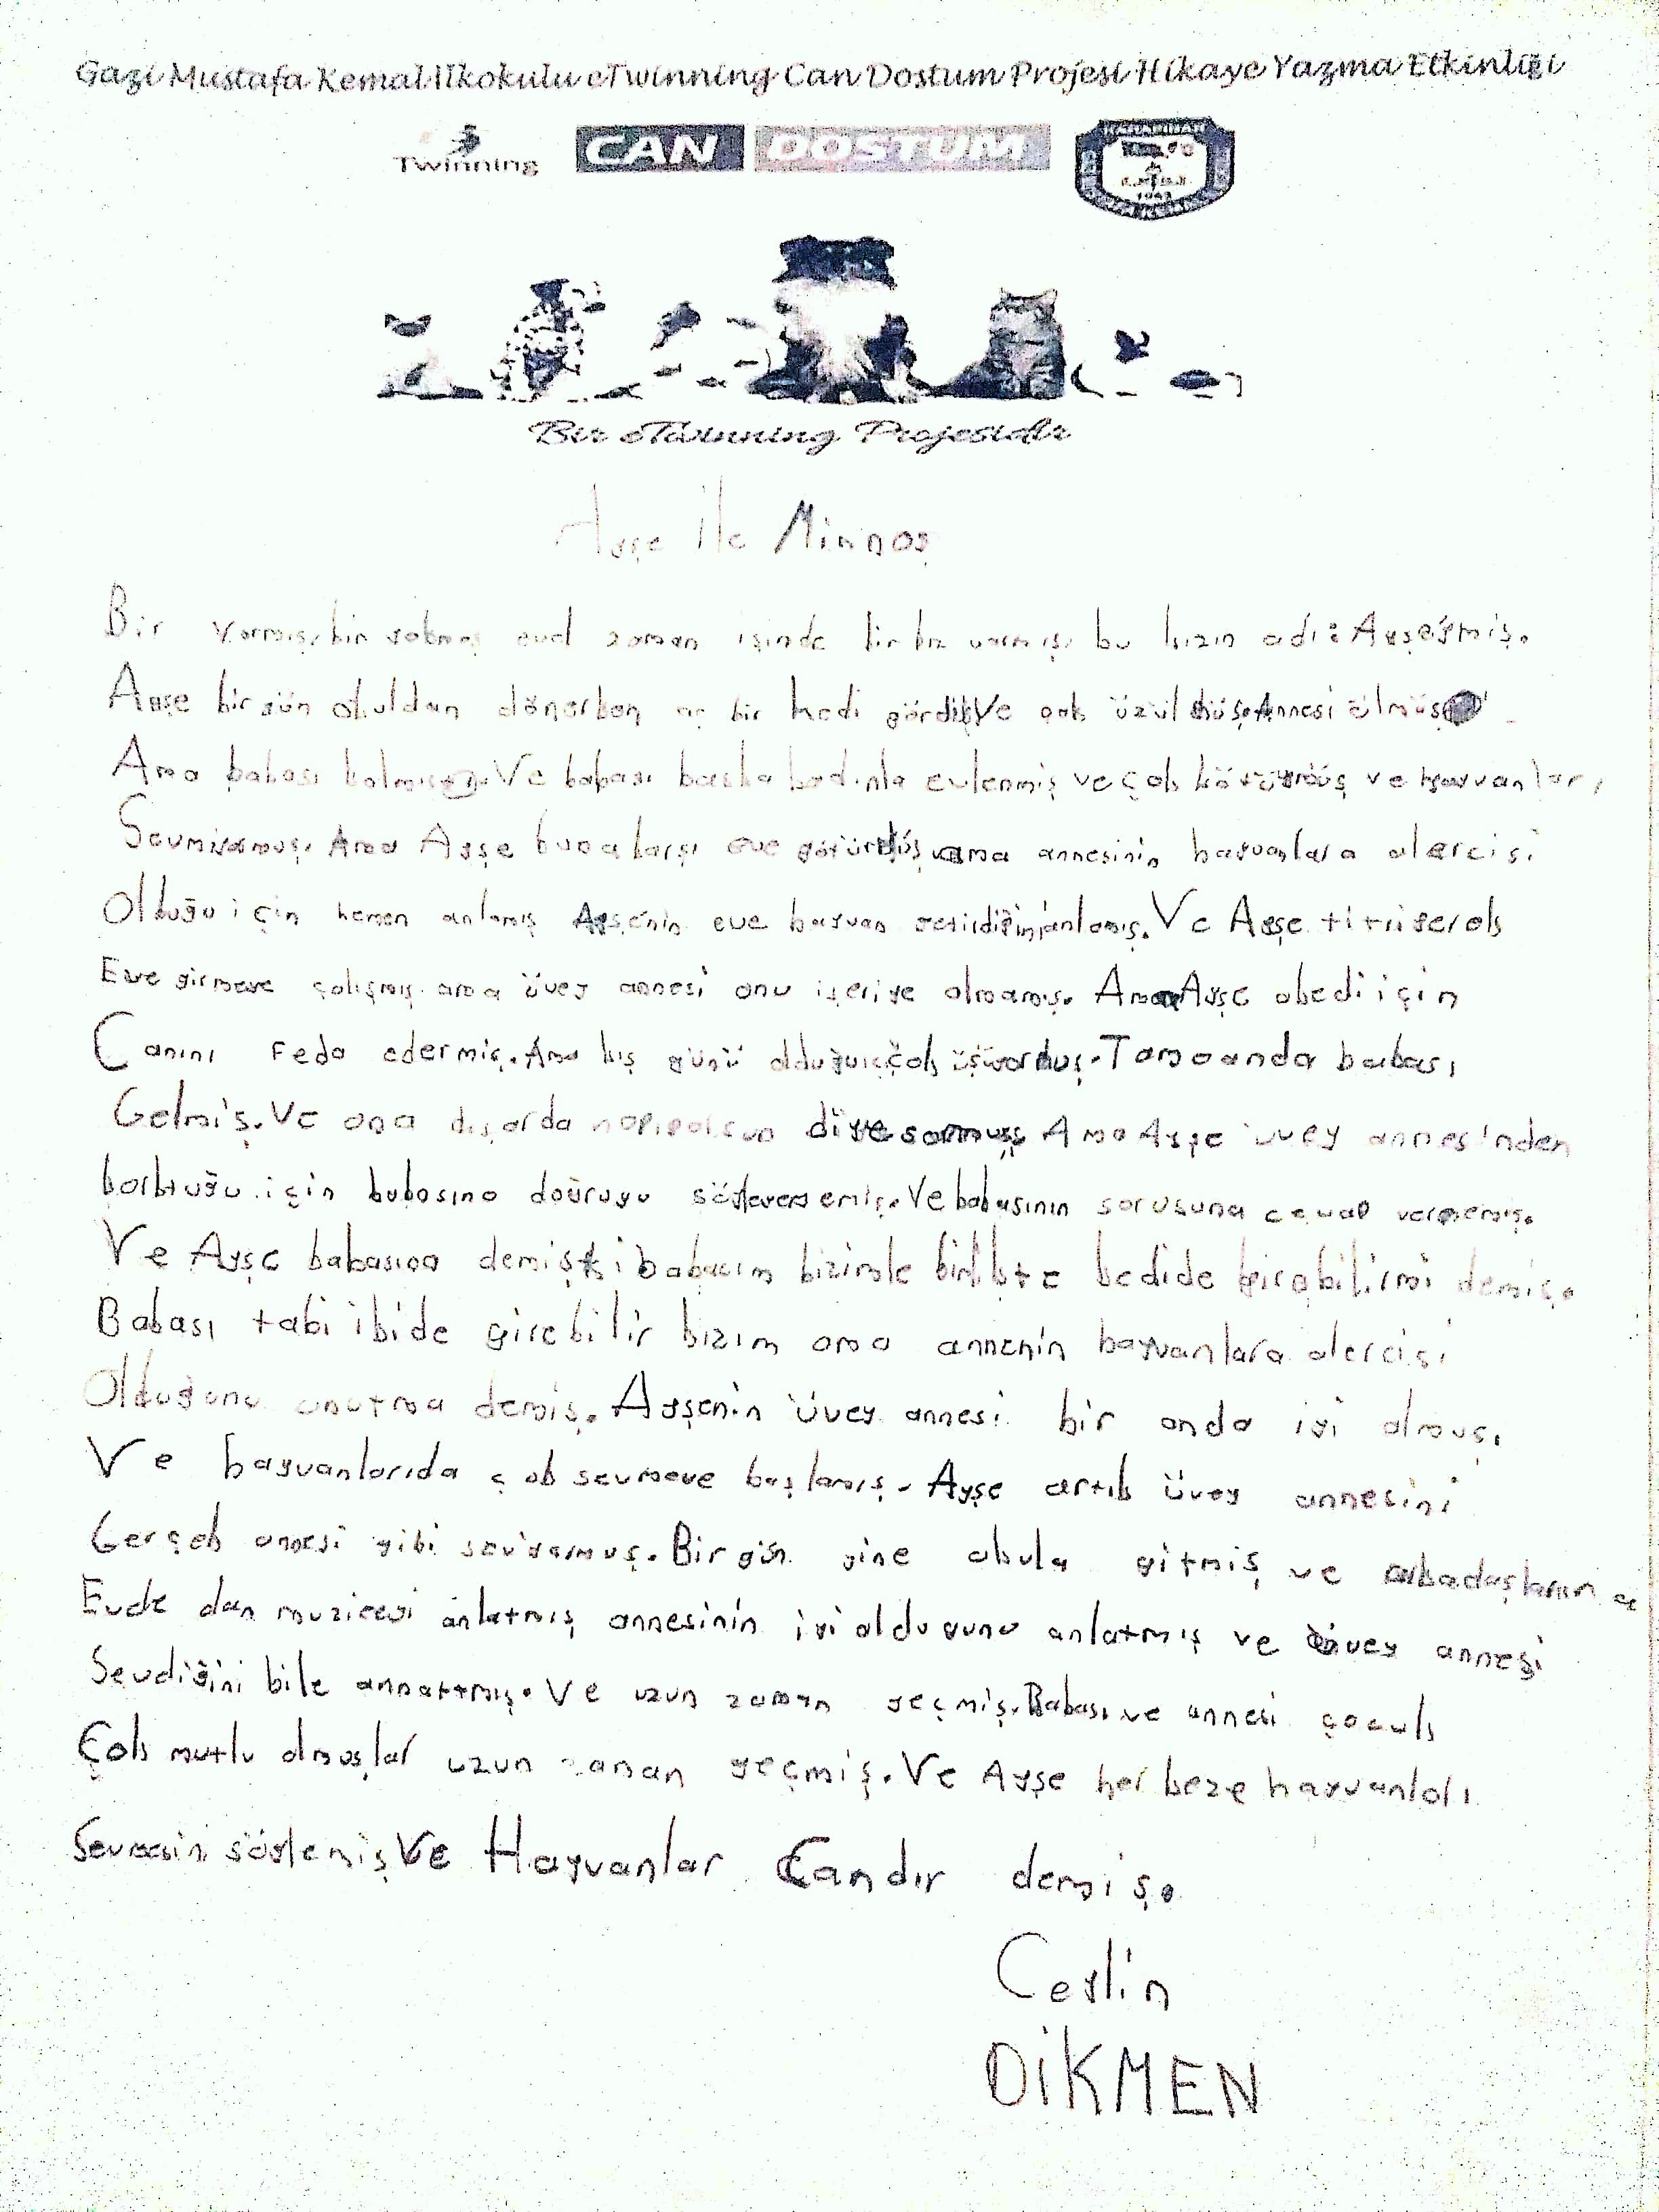 Gazi Mustafa Kemal İlkokulu eTwinning Can Dostum Projesi Hikaye Yazma Etkinliği
Twinning CAN DOSTUM
1963
Bir eTwinning Projesidir
Ayşe ile Minnoş
Bir varmış, bir yokmuş evel zaman içinde bir kız varmış, bu kızın adı: Ayşe'ymiş.
Ayşe bir gün okuldan dönerken aç bir kedi gördü Ve çok üzülmüş. Annesi ölmüş
Ama babası kalmış. Ve babası başka kadınla evlenmiş ve çok kötüymüş ve hayvanları
Sevmiyormuş. Ama Ayşe buna karşı eve götürmüş ama annesinin hayvanlara alercisi
Olduğu için hemen anlamış Ayşenin eve hayvan getirdiğini anlamış. Ve Ayşe titriyerek
Eve girmeye çalışmış ama üvey annesi onu içeriye almamış. Ama Ayşe okedi için
Canını Feda edermiş. Ama kış günü olduğu çok üşüyorduş. Tamo anda babası
Gelmiş. Ve ona dışarda napıyorsun diye sormuş Ama Ayşe üvey annesinden
korktuğu için babasına doğruyu söyleyememiş. Ve babasının sorusuna cevap vermemiş.
Ve Ayşe babasına demişki babacım bizimle birlikte kedide girebilirmi demiş.
Babası tabi ikide girebilir kızım ama annenin hayvanlara alercisi
Olduğunu unutma demiş. Ayşenin üvey annesi bir anda iyi olmuş.
Ve hayvanlarıda çok sevmeye başlamış. Ayşe artık üvey annesini
Gerçek annesi gibi seviyormuş. Bir gün yine okula gitmiş ve arkadaşlarına
Evde dan anlatmış annesinin iyi olduğunu anlatmış ve üvey annesi
Sevdiğini bile annatmış. Ve uzun zaman geçmiş. Babası ve annesi çocuk
Çok mutlu olmuşlar uzun zaman geçmiş. Ve Ayşe herkeze hayvanları
söylemiş Ve Hayvanlar Candır demiş.
Ceylin
DİKMEN